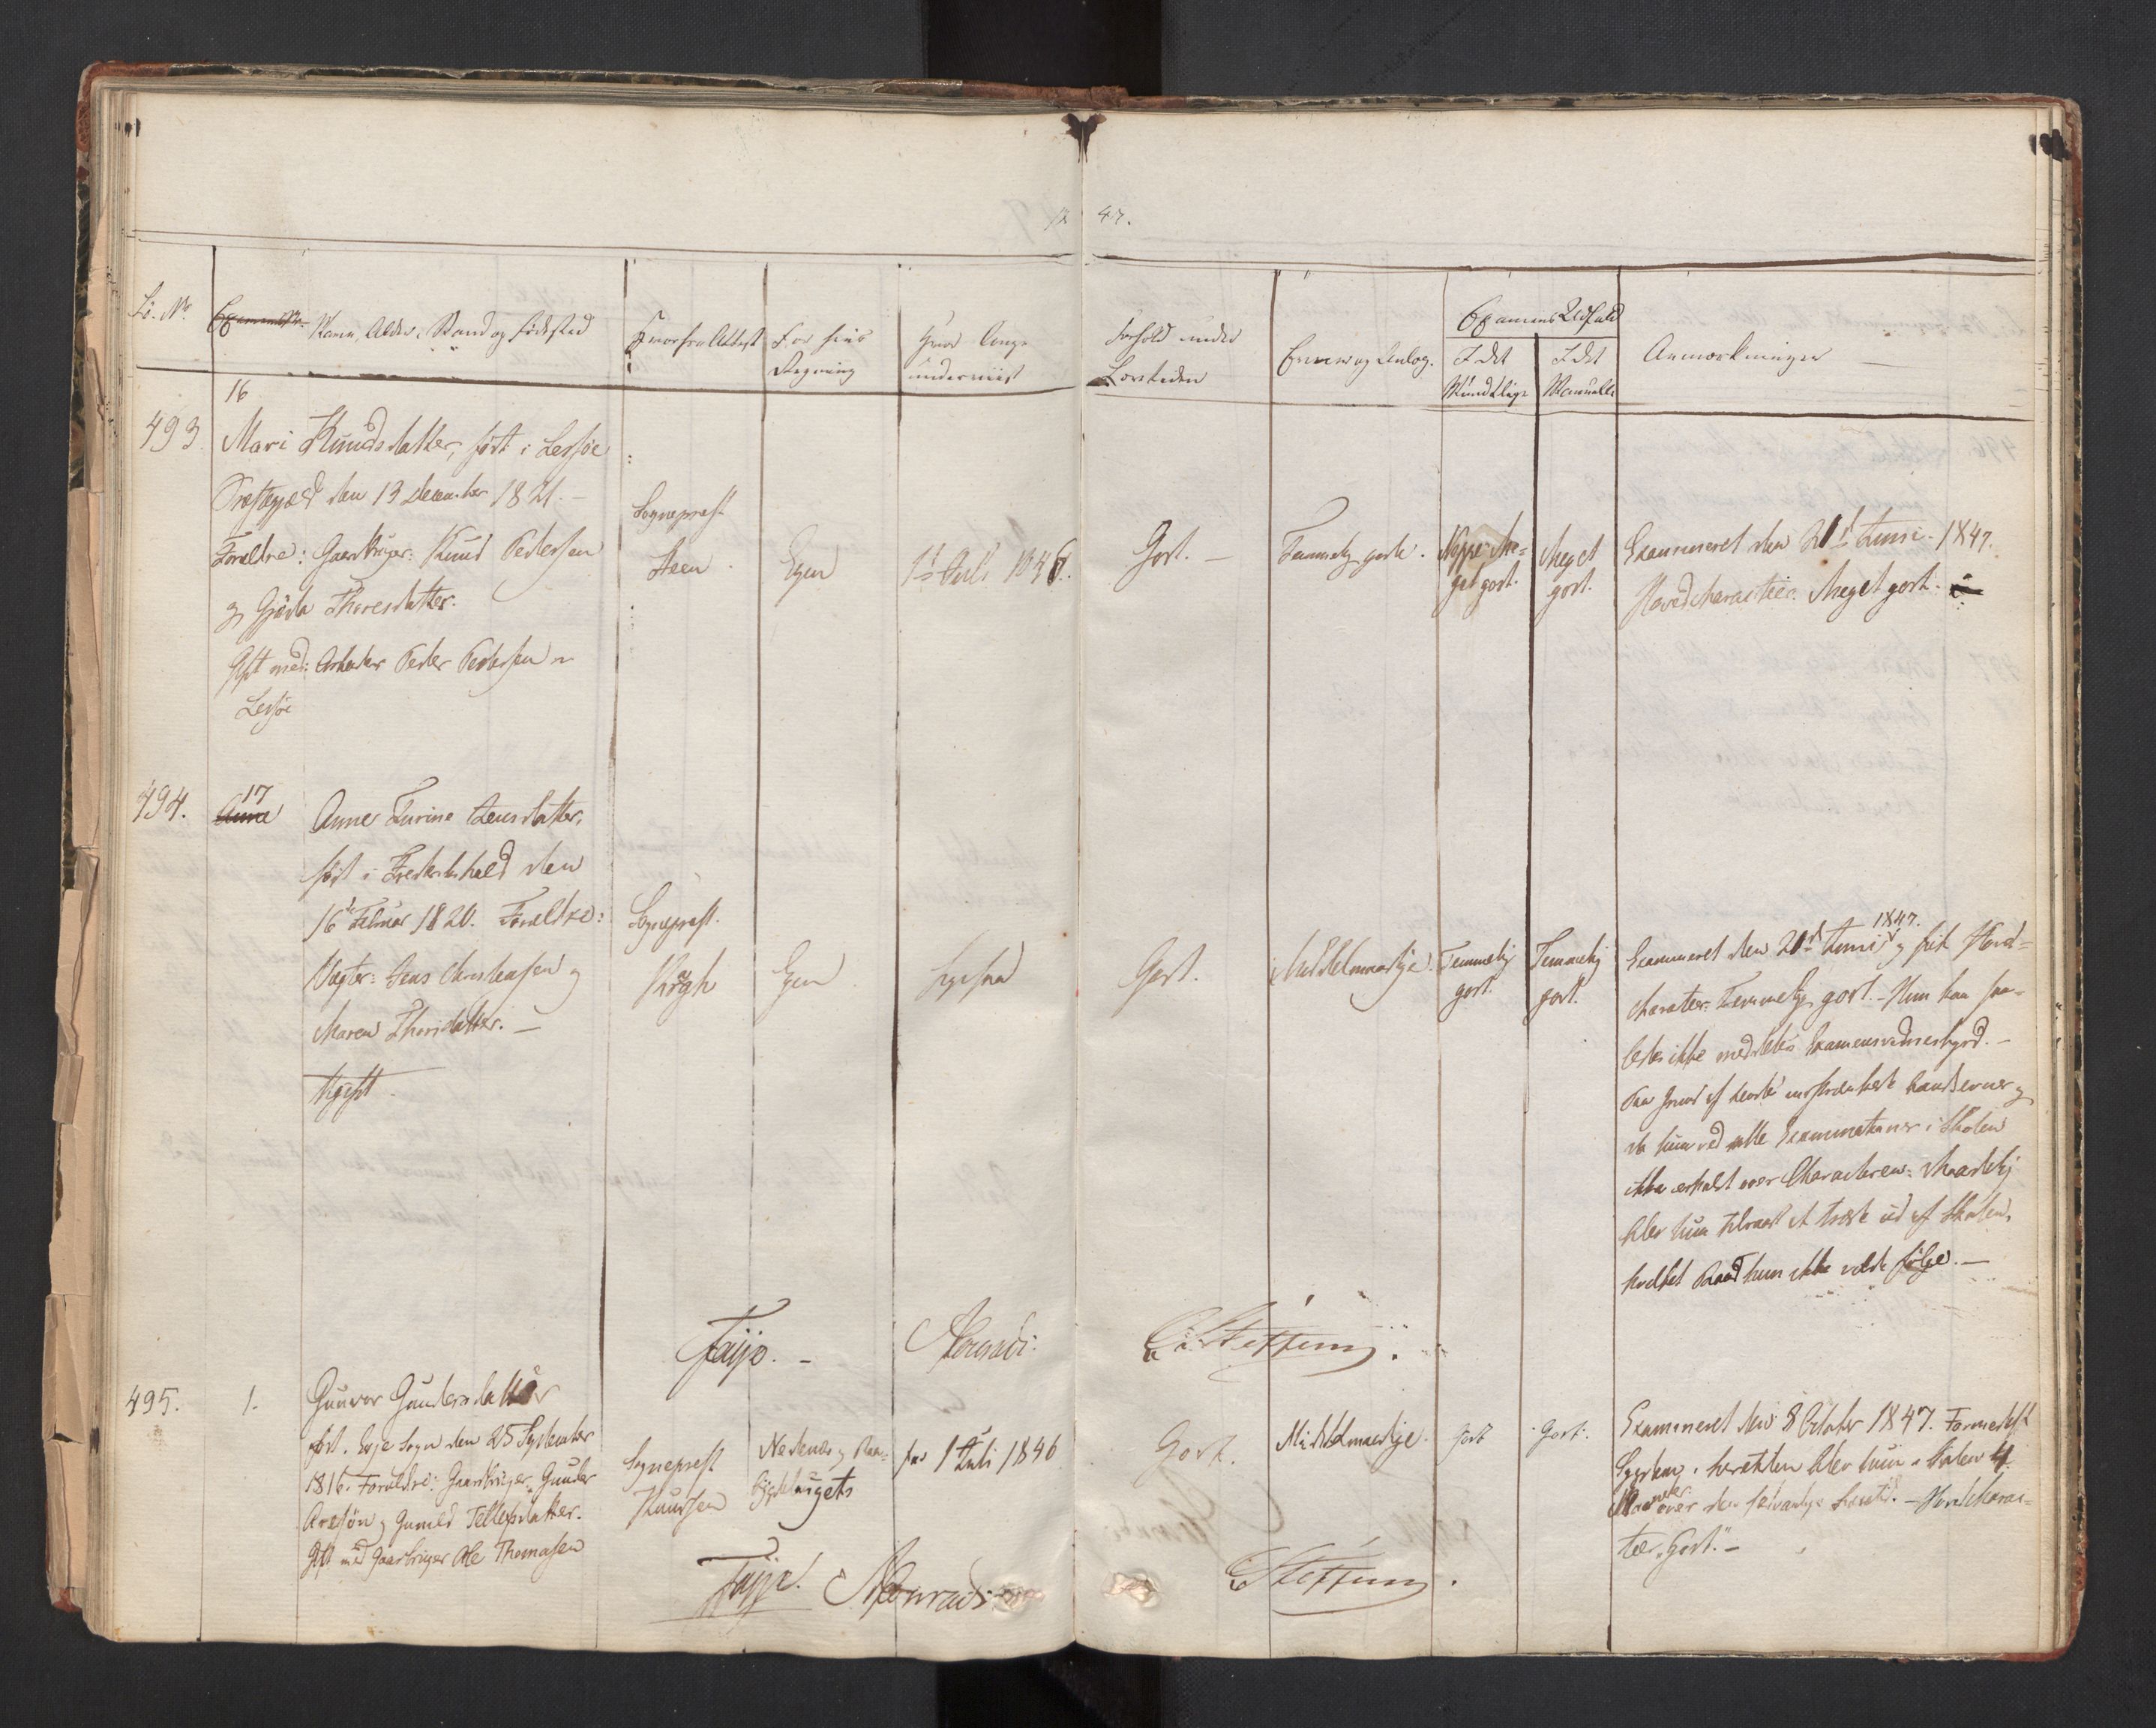 47.
Lö. Nr.
Examens Nr. Navn, Alder, Stand og Födested
Hvorfra Attest
For hvis
Regning
Hvor længe
underviist
Forhold under
Læretiden
Evner og Anlæg.
Examens Udfald
I det
Mundtlige
I det
Manuelle
Anmærkninger
16
493. Mari Knudsdatter, født i Lesjøe
Præstegjeld den 13 December 1821. –
Forældre: Gaardbruger: Knud Pedersen
og Thoresdatter.
Gift med: Arbeider Peder Pedersen
Lesjøe
Sognepræst
Steen
Egen
1ste Juli 1846.
Godt. –
Temmelig gode.
Neppe Me-
get godt.
Meget
godt.
Examineret den 21de Juni 1847.
Hovedcharacteer: Meget godt.
17
494. Anne Anne Jensdatter,
født i Frederikshald den
16de Februar 1820. Forældre:
Vægter: Jens Christensen og
Maren Thorsdatter. –
Ugift.
Sognepræst
Kogh
Egen
Ligesaa
Godt.
Middelmaadige.
Temmelig
godt.
Temmelig
godt.
1847.
Examineret den 21de Juni og fik Hoved-
character: Temmelig godt. – Hun kan saa-
ledes ikke meddeles Examensvidnesbyrd. –
Paa Grund af hendes indskrænkede Aandsevner og
da hun ved alle Examinationer i Skolen
ikke erholdt over Characteren: Maadelig
blev hun tilraadt at træde ud af Skolen,
hvilket Raad hun ikke vilde følge. –
Faye. – Conradi. Steffens.
495. 1. Gunvor Gundersdatter
født i Evje Sogn den 25 September
1816. Forældre: Gaardbruger Gunder
Aresøn og Gunild Tellefsdatter.
Gift med Gaardbruger Ole Thomasen
Sognepræst
Knudsen
Nedenæs og Raa-
bygdelaugets
fra 1ste Juli 1846
Godt.
Middelmaadige.
Godt
Godt.
Examineret den 8 October 1847. Formedelst
Sygdom i Læretiden blev hun i Skolen 4
Maaneder over den sædvanlige Læretid. – Hovedcharac-
teer "Godt." –
Faye. Conradi Steffens.